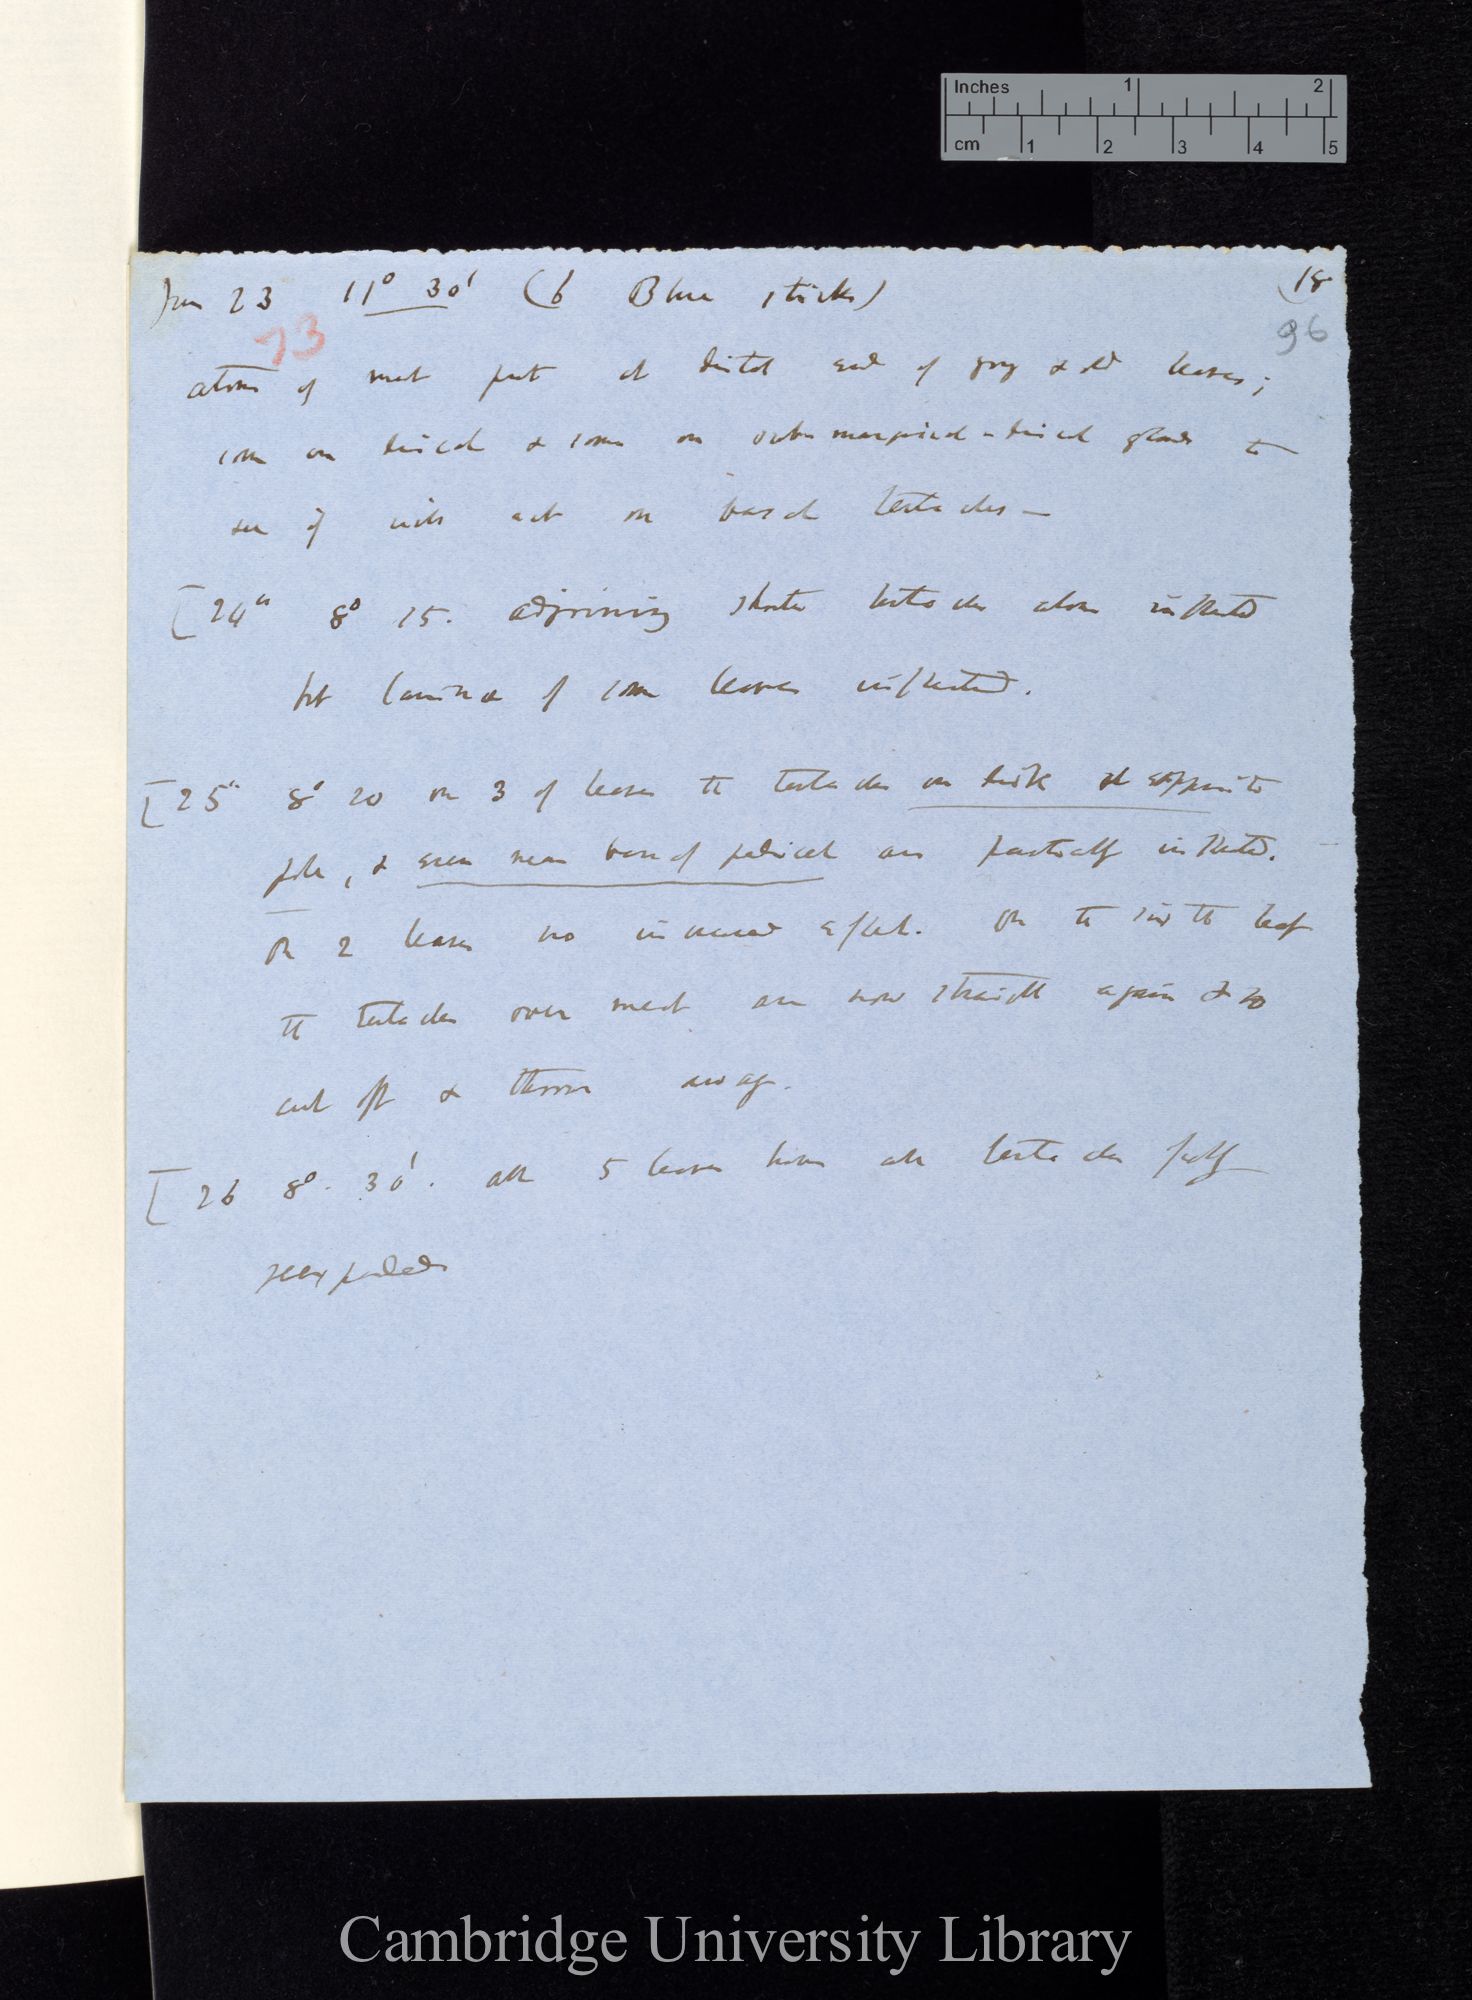 Inches 1 2
cm 1 2 3 4 5
Jun 23 11° 30' (6 Blue sticks)
(18
73
96
atoms of meat put at distal end of yng & old leaves;
some on discal & some on submarginal-discal glands to
see if will act on basal tentacles —
[24th 8° 15. adjoining shorter tentacles alone inflected
but lamina of some leaves inflected.
[25th 8° 20 on 3 of leaves the tentacles on disk at opposite
pole, & even near base of pedicel are partially inflected.
On 2 leaves no increased effect. On the sixth leaf
the tentacles over meat are now straight again & so
cut off & thrown away.
[26 8°. 30'. all 5 leaves have all tentacles fully
reexpanded
Cambridge University Library